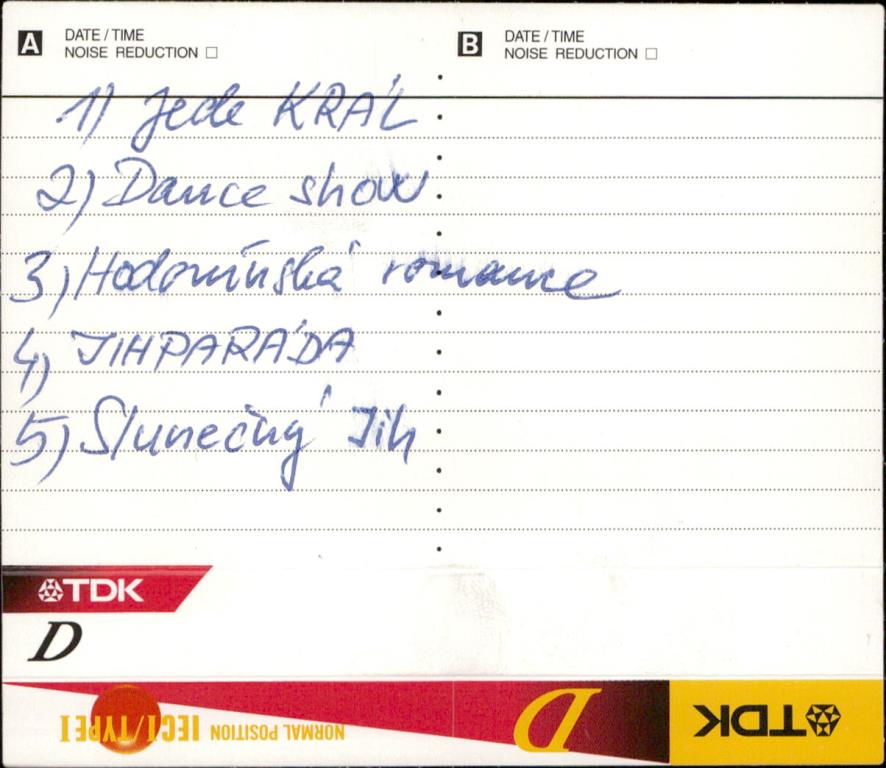 A DATE / TIME
NOISE REDUCTION
B DATE / TIME
NOISE REDUCTION
1) Jede KRÁL
2) Dance show
3) Hodonínská romance
4) JIHPARÁDA
5) Slunečný Jih
TDK
D
TDK
D
NORMAL POSITION IECI/TYPEI